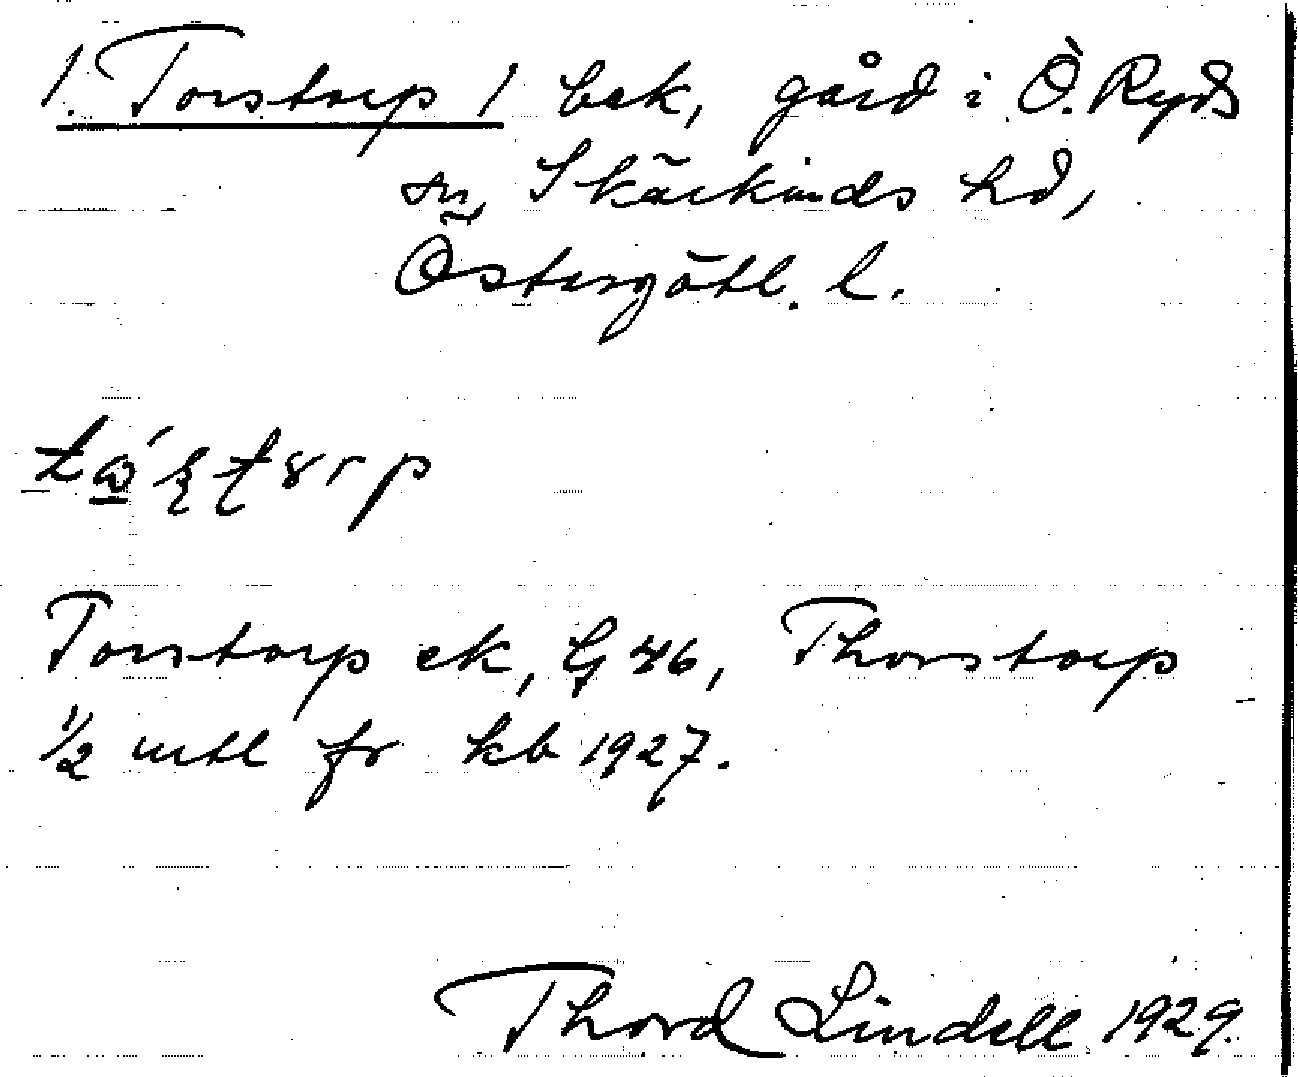 1. Torstorp 1 bek, gård i Ö. Ryds
sn, Skärkinds hd,
Östergötl. l.
Torstorp ek, G 46, Thorstorp
1/2 mtl fr kb 1927.
Thord Lindell 1929.